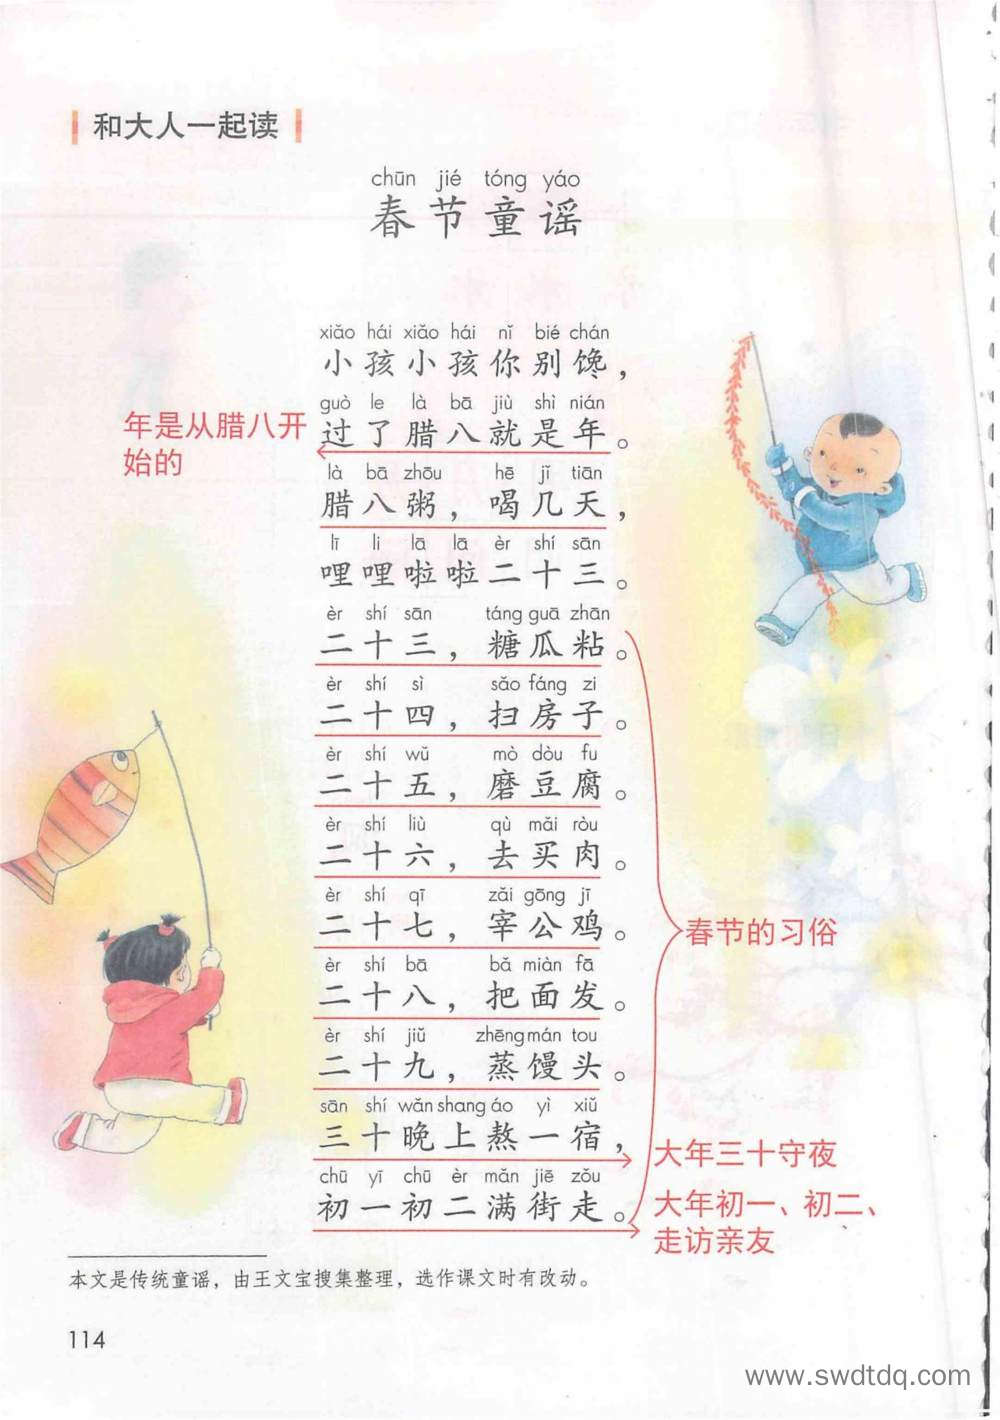 和大人一起读
chūn jié tóng yáo
春节童谣
xiǎo hái xiǎo hái nǐ bié chán
小孩小孩你别馋，
guò le là bā jiù shì nián
过了腊八就是年。
年是从腊八开
始的
là bā zhōu hē jǐ tiān
腊八粥，喝几天，
lī li lā lā èr shí sān
哩哩啦啦二十三。
èr shí sān táng guā zhān
二十三，糖瓜粘。
èr shí sì sǎo fáng zi
二十四，扫房子。
èr shí wǔ mò dòu fu
二十五，磨豆腐。
èr shí liù qù mǎi ròu
二十六，去买肉。
èr shí qī zǎi gōng jī
二十七，宰公鸡。
春节的习俗
èr shí bā bǎ miàn fā
二十八，把面发。
èr shí jiǔ zhēng mán tou
二十九，蒸馒头。
sān shí wǎn shang áo yì xiǔ
三十晚上熬一宿，
大年三十守夜
chū yī chū èr mǎn jiē zǒu
初一初二满街走。
大年初一、初二、
走访亲友
本文是传统童谣，由王文宝搜集整理，选作课文时有改动。
114
www.swdtdq.com